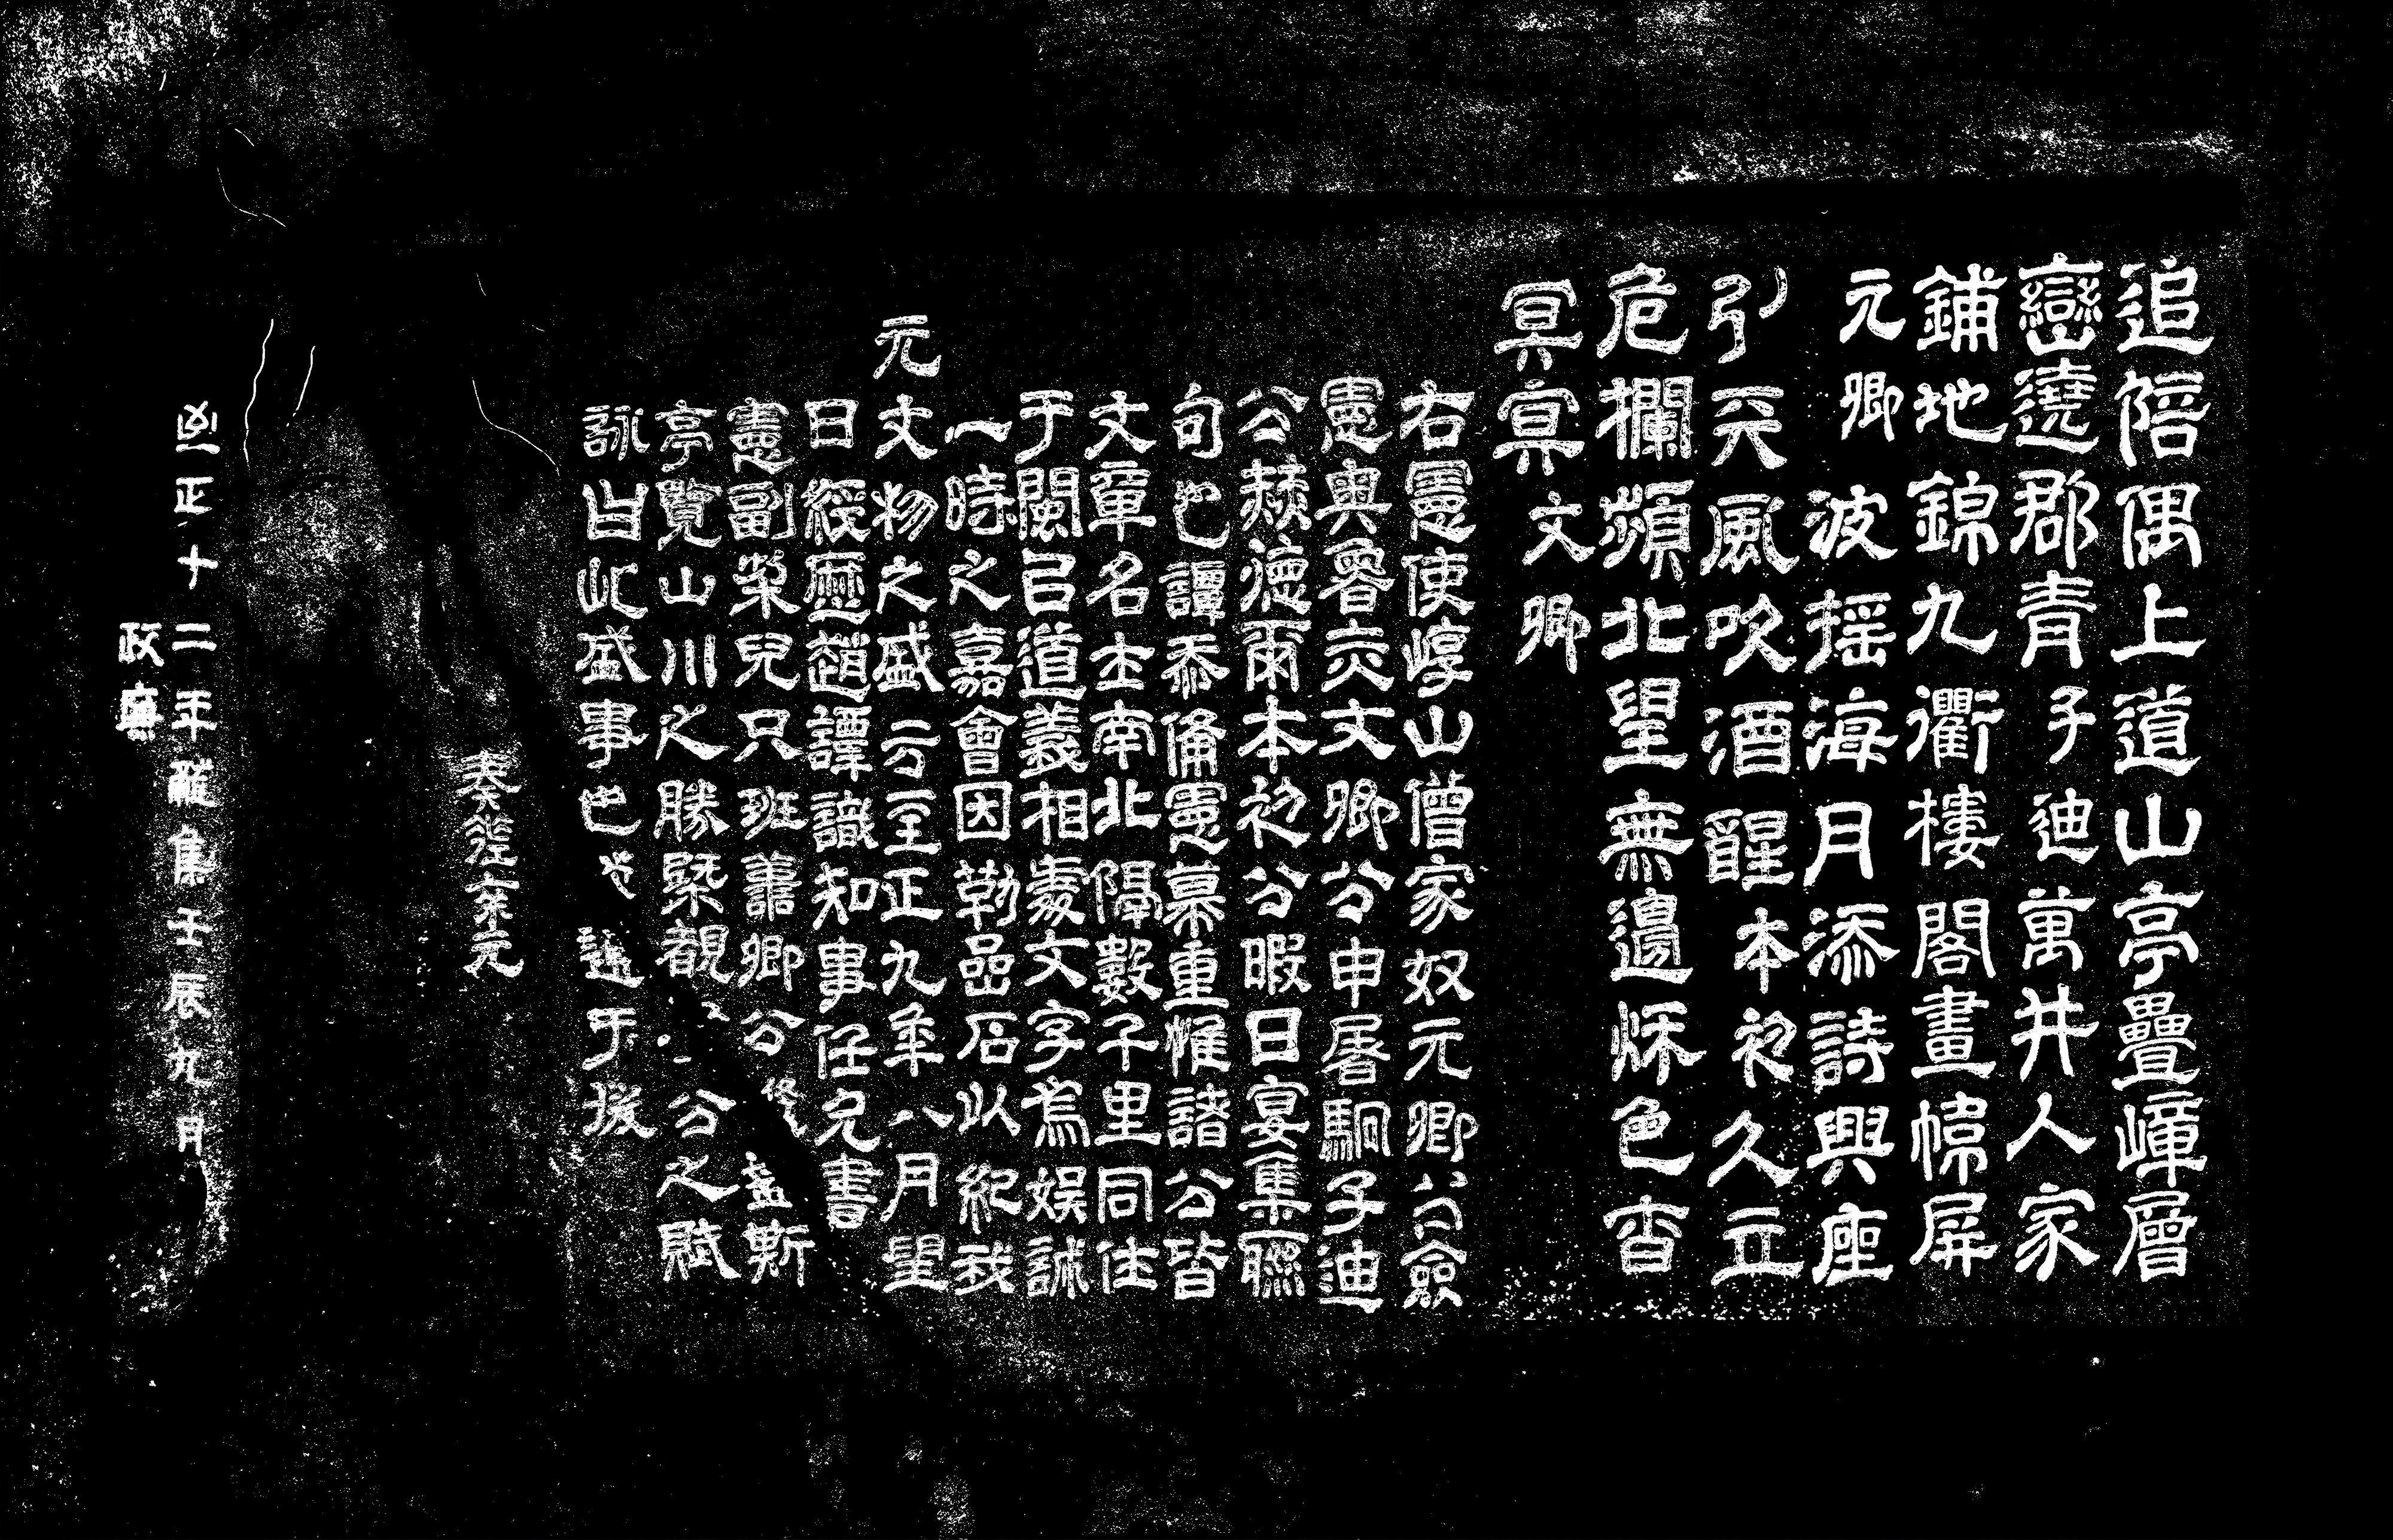 追陪偶上道山亭疊嶂層
巒遶郡青子迪萬井人家
鋪地錦九衢樓閣畫幃屏
元卿波搖海月添詩興座
引天風吹酒醒本初久立
危欄頻北望無邊秋色杳
冥冥文卿
右憲使崞山僧家奴元卿公僉
憲奧魯赤文卿公申屠駉子迪
公赫德爾本初公暇日宴集聯
句也譚忝備憲幕重惟諸公皆
文章名士南北隔數千里同仕
于閩以道義相處文字為娛誠
一時之嘉會因勒嵓石以紀我
元文物之盛云至正九年八月望
日經歷趙譚識知事任允書
憲副梁兒只班肅卿公
亭覽山川之勝槩觀公之賦
詠皆此盛事也于後
至正十二年龍集壬辰九月